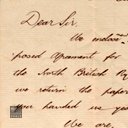 Dear Sir,
We enclose
posed Agreement for
the North British Ry
we return the paper
you handed us yes
We are,